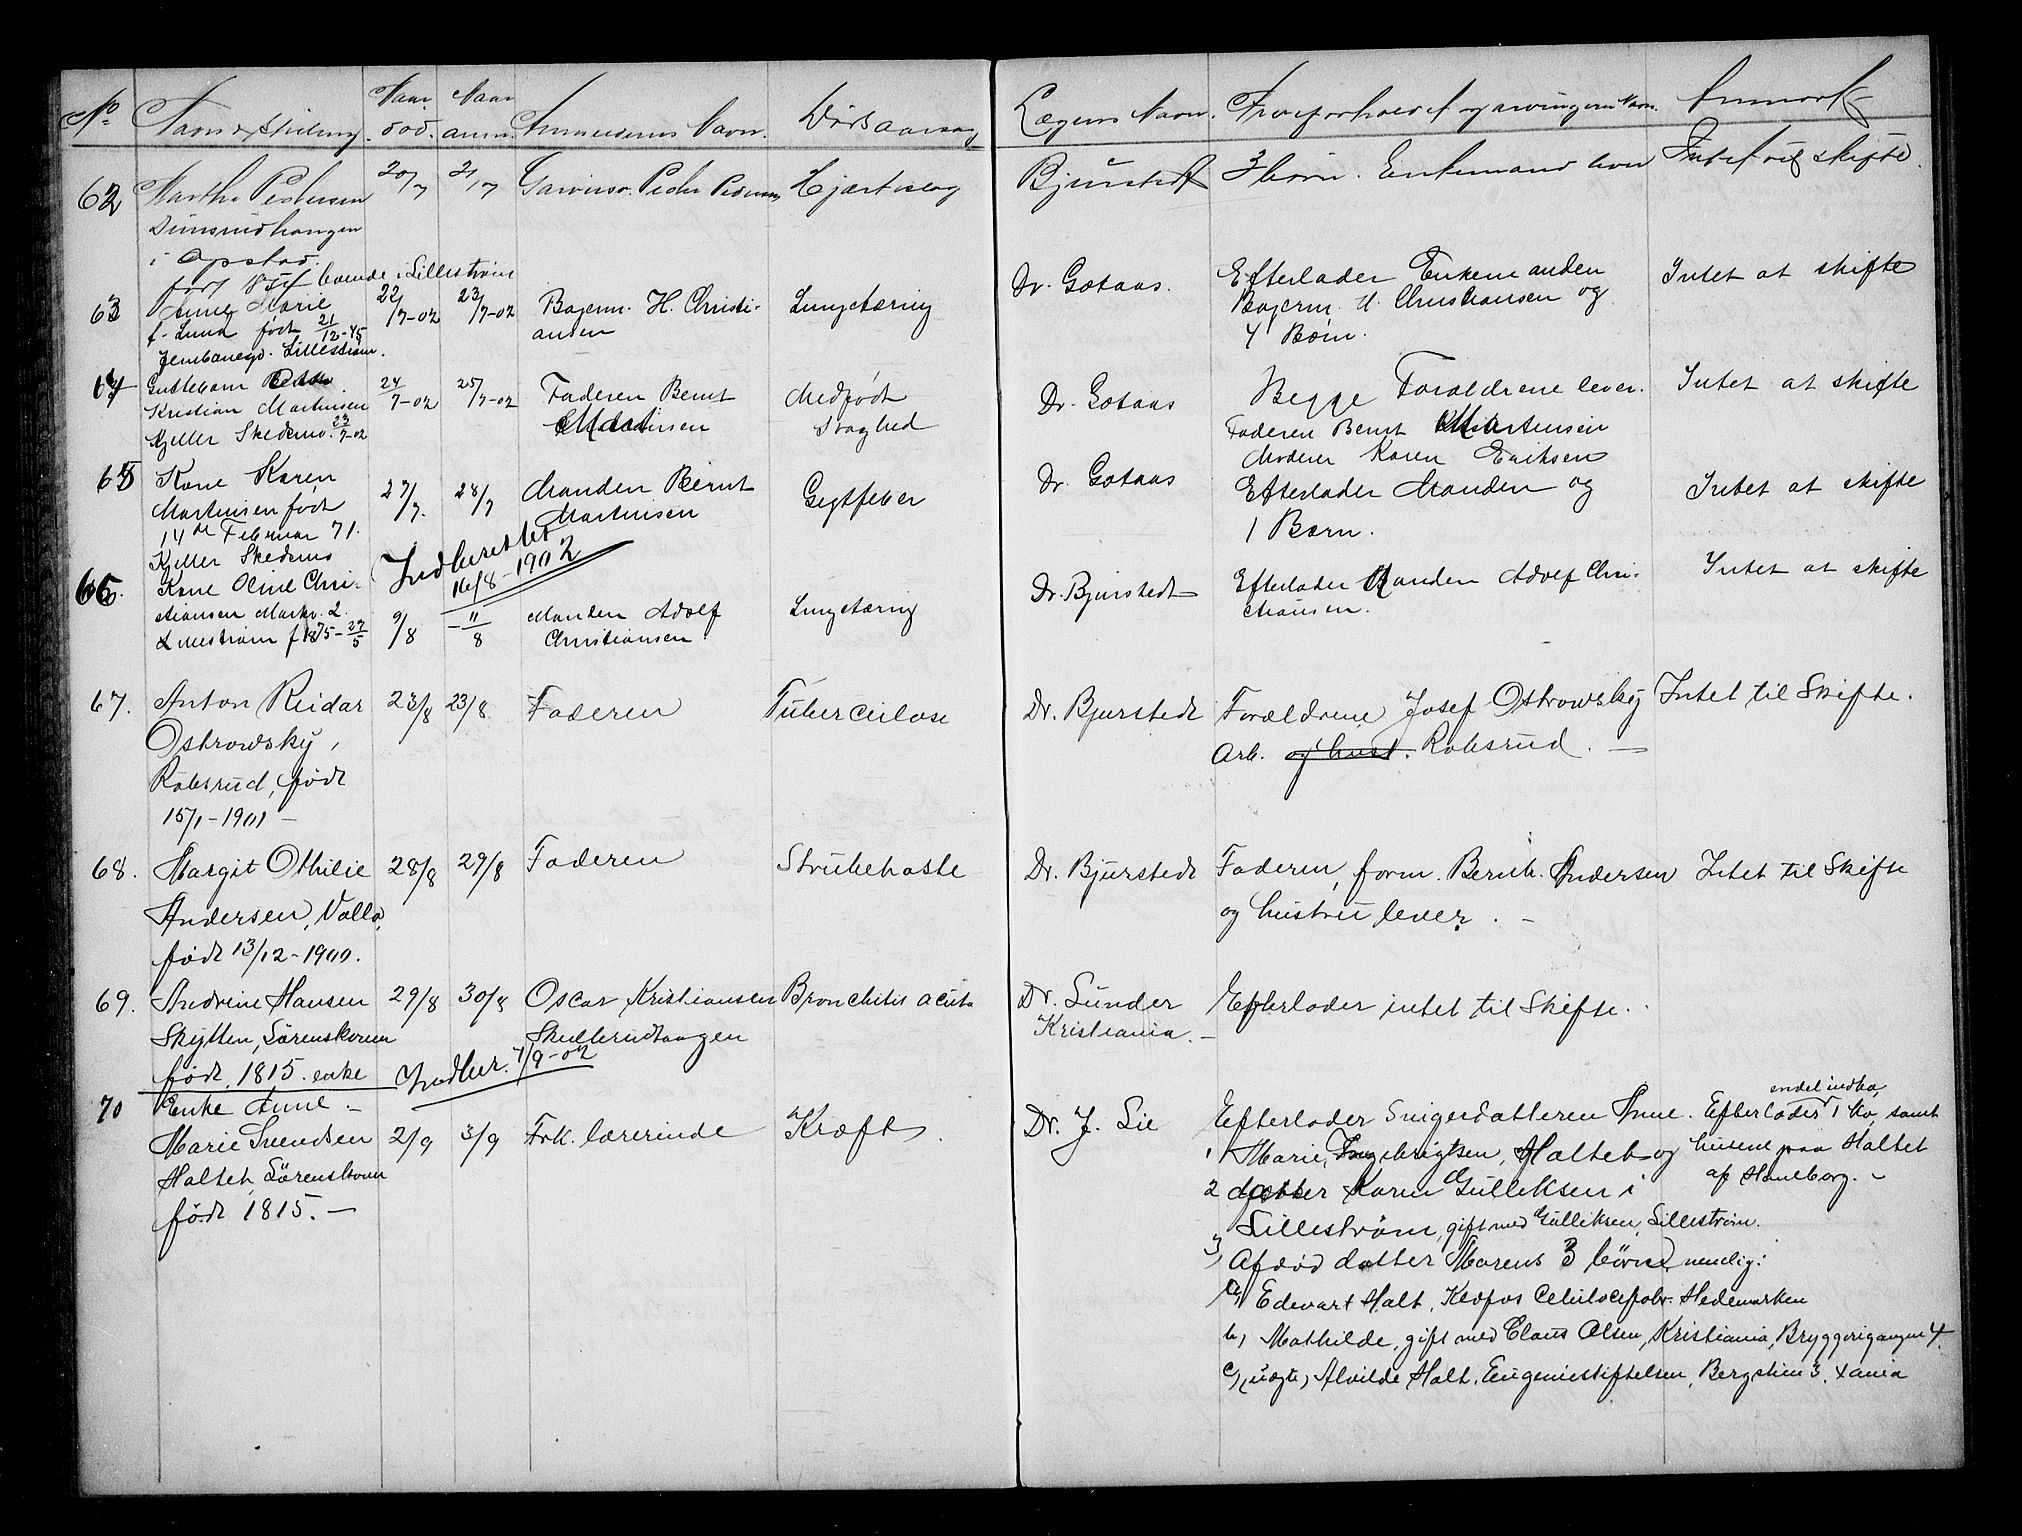 No Navn & Stilling. Naar död. Naar anm. Anmelderens Navn. Dödsaarsag Lægens Navn. Anmærk
62 Marthe Pedersen 20/7 21/7 Peder Pedersen Hjærteslag Bjurstedt 3 börn. Enkemand lever Intet til skifte.
i Opstad.
boende i Lilleström
63 Anne Marie 22/7-02 23/7-02 Bagerm. H. Christi- Lungetæring Dr. Gotaas. Efterlader Enkemanden Intet at skifte
f. Lund født 21/12-45 ansen Bagerm. H. Christiansen og
Jernbanegd. Lillestrøm. 4 Børn.
64 Guttebarn 24/7-02 25/7-02 Faderen Bernt Medfødt Dr. Gotaas Begge Forældrene lever. Intet at skifte
Kristian Martinsen Martinsen Svaghed Faderen Bernt Martensen
Kjeller Skedsmo. 23/7-02 Moderen Karen Eriksen
65 Kone Karen 27/7. 28/7 Manden Bernt Gigtfeber Dr. Gotaas Efterlader Manden og Intet at skifte
Martinsen født Martinsen 1 Barn.
14de Februar 71.
Kjeller Skedsmo Indberettet 16/8-1902
66. Kone Oline Chri- 9/8 11/8 Manden Adolf Lungetæring Dr. Bjurstedt Efterlader Manden Adolf Chri- Intet at skifte
stiansen Markv. 2. Christiansen. stiansen.
Lillestrøm f. 1875-27/5
67. Anton Reidar 23/8 23/8. Faderen Tuberculose Dr. Bjurstedt Forældrene Josef Ostrowsky Intet til Skifte.
Ostrowsky, Arb. og hust. Robsrud. —
Robsrud, født
15/1-1901 —
68. Margit Othilie 28/8 29/8 Faderen Strubehoste Dr. Bjurstedt Faderen, form. Bernh. Andersen Intet til Skifte
Andersen, Valla, og hustru lever. —
født 13/12-1900.
69. Andrine Hansen 29/8 30/8 Oscar Kristiansen Bronchitis acuta Dr. Sunder Efterlader intet til Skifte.
Skytten, Sörenskoven Skullerudhaugen Kristiania. —
født 1815. enke Indber. 1/9-02
70 Enke Anne — 2/9 3/9 Frk. lærerinde Kræft. Dr. J. Lie Efterlader Svigerdatteren Anne. Efterlader endel indbo, 1 ko, samt
Marie Svendsen 1 Marie Ingebrigtsen, Haltet og husene paa Haltet
Haltet, Sörenskoven 2 datter Karen Gulliksen i af Haneborg. —
født 1815. — Lilleström, gift med Gulliksen, Lilleström.
3, Afdöd datter Marens 3 börn, nemlig:
a, Edevart Halt, Klevfos Celulosefabr. Hedemarken
b, Mathilde, gift med Claus Olsen, Kristiania, Bryggerigangen 4.
c, (ugft), Alvilde Halt, Eugeniestiftelsen, Bergstien 3, Xania